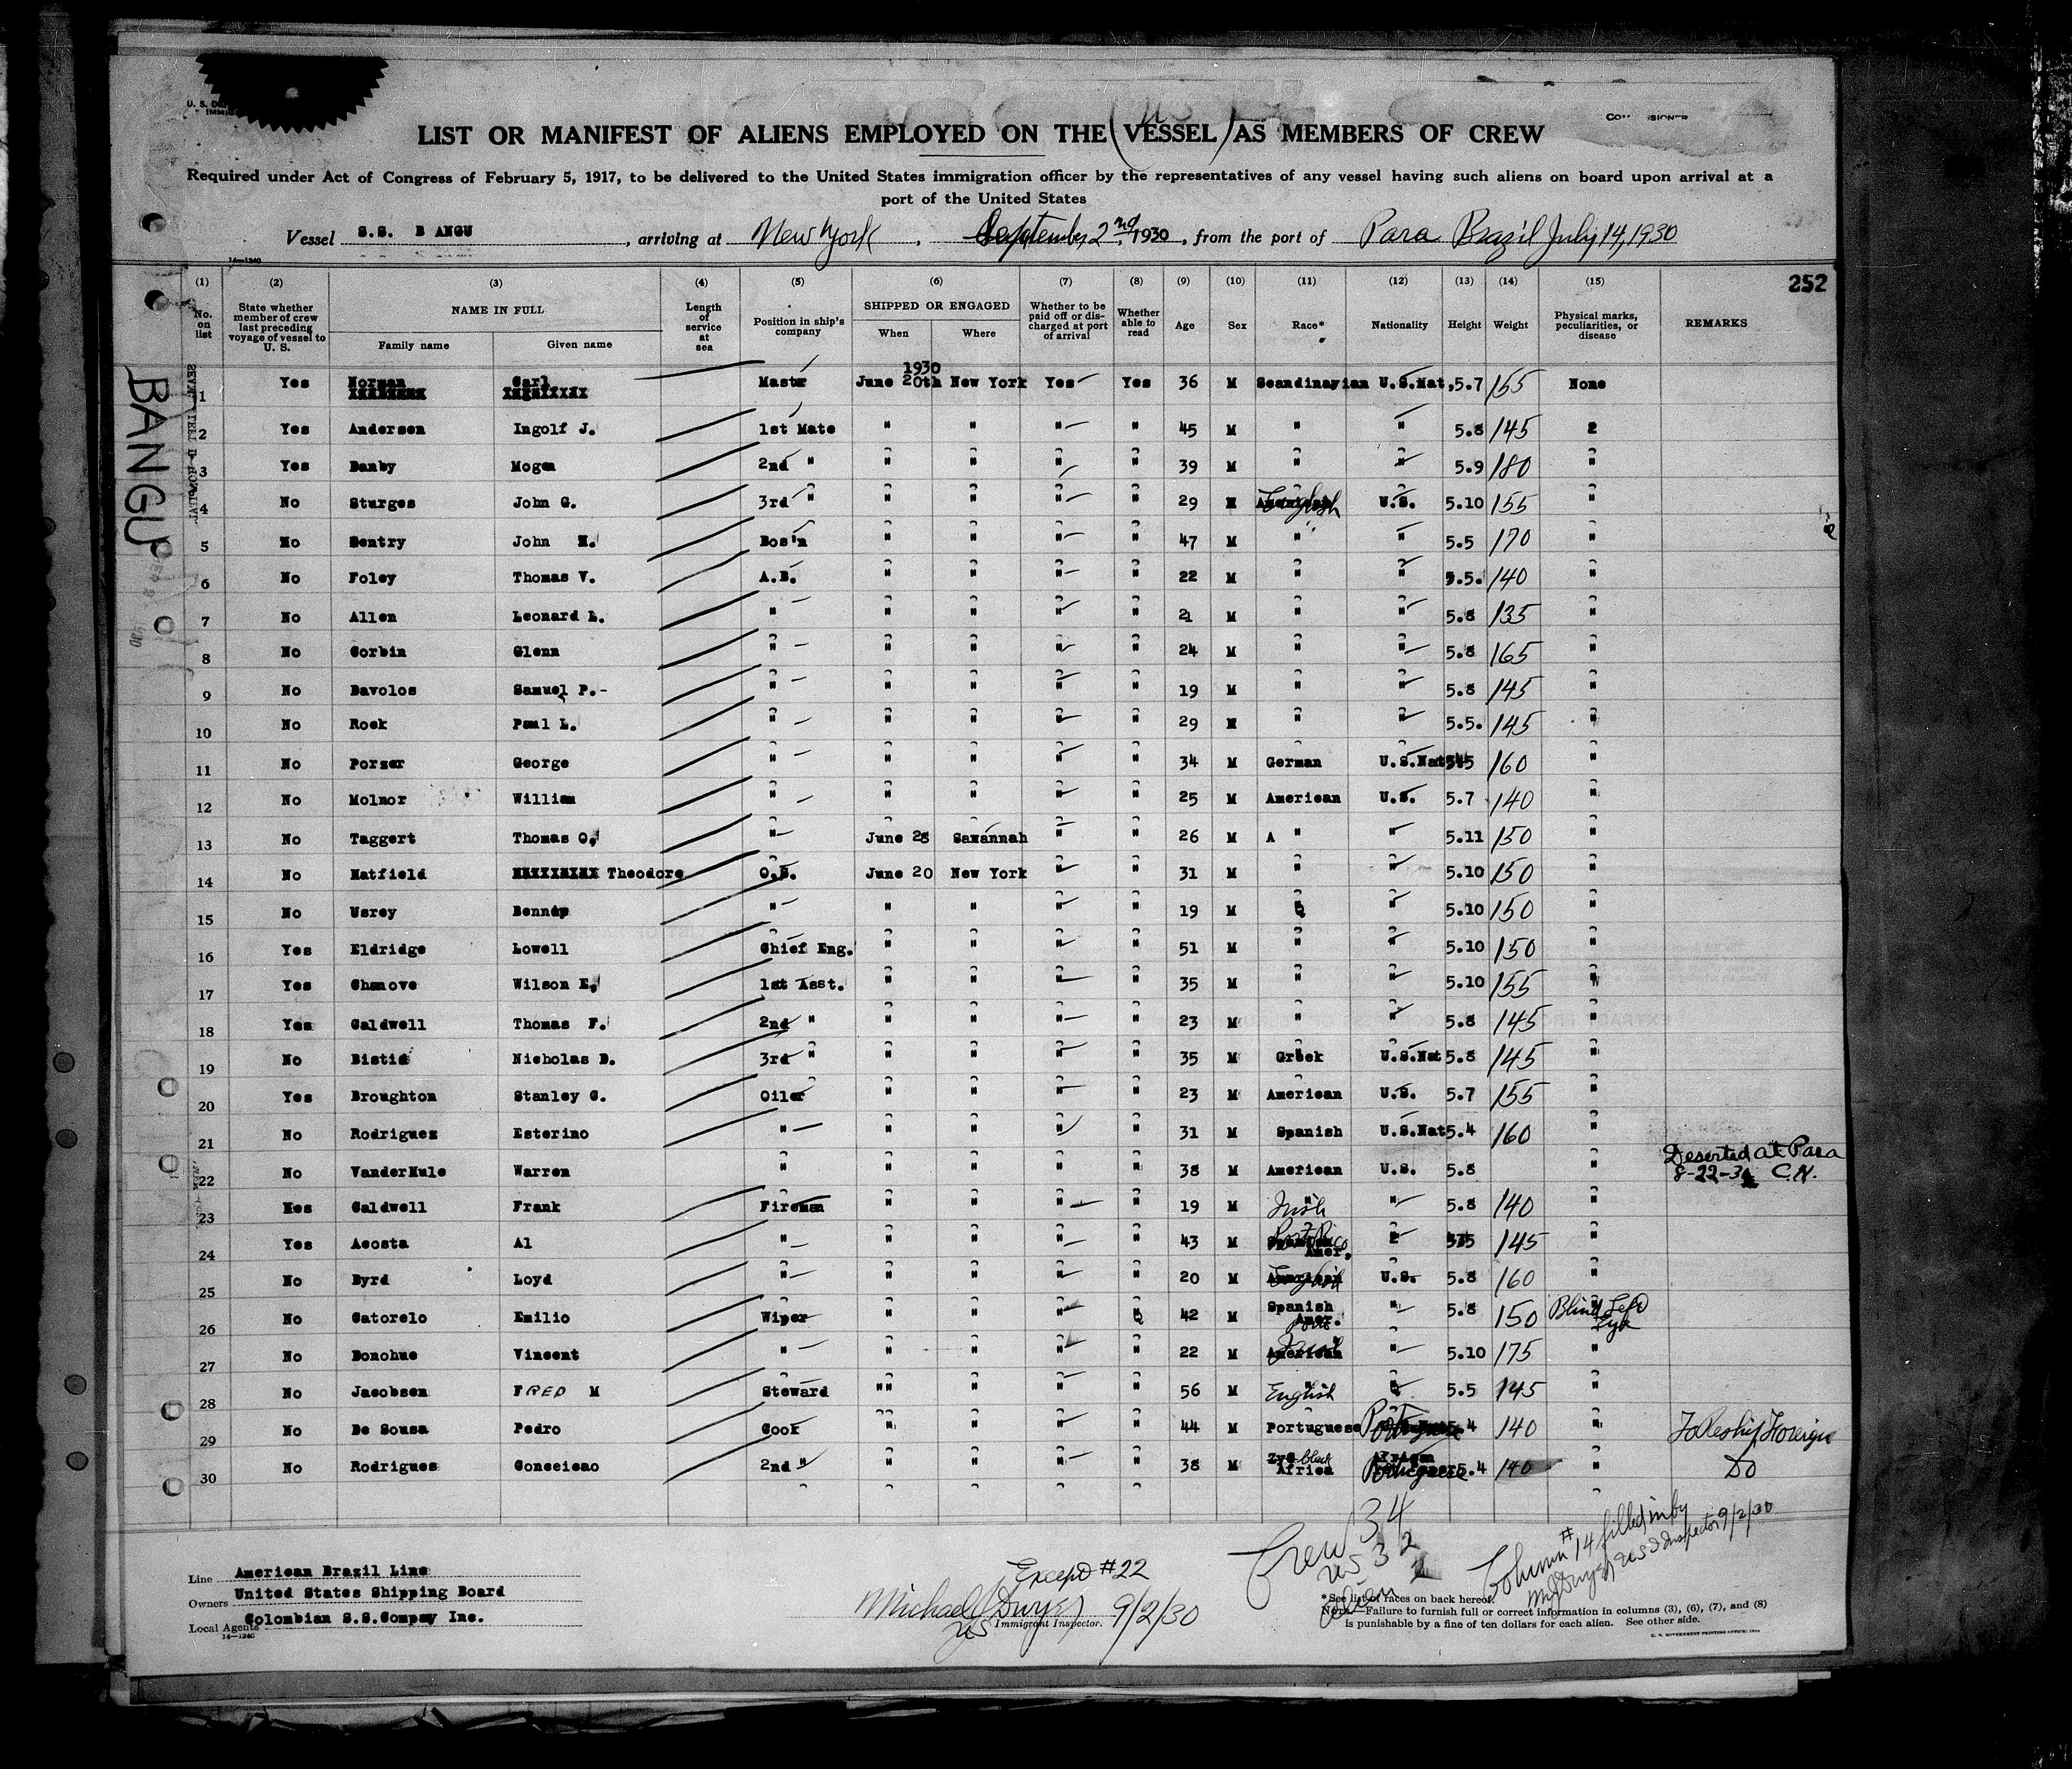 LIST OR MANIFEST OF ALIENS EMPLOYED ON THE (VESSEL) AS MEMBERS OF CREW
Required under Act of Congress of February 5, 1917, to be delivered to the United States immigration officer by the representatives of any vessel having such aliens on board upon arrival at a
port of the United States
Vessel S.S. B ANGU, arriving at New York, September 2nd, 1930, from the port of Para Brazil July 14, 1930
252
BANGU
(1) (2) (3) (4) (5) (6) (7) (8) (9) (10) (11) (12) (13) (14) (15)
No. on list
State whether member of crew last preceding voyage of vessel to U. S.
NAME IN FULL
Family name Given name
Length of service at sea
Position in ship's company
SHIPPED OR ENGAGED
When Where
Whether to be paid off or discharged at port of arrival
Whether able to read
Age Sex Race* Nationality Height Weight
Physical marks, peculiarities, or disease
REMARKS
1930
1 Yes Norman Carl Mastr June 20th New York Yes Yes 36 M Scandinavian U.S.Nat. 5.7 155 None
2 Yes Andersen Ingolf J. 1st Mate " " " " 45 M " " 5.8 145 2
3 Yes Banby Mogen 2nd " " " " " 39 M " " 5.9 180 "
4 No Sturges John G. 3rd " " " " " 29 M English U.S. 5.10 155 "
5 No Sentry John H. Bos'n " " " " 47 M " " 5.5 170 "
6 No Foley Thomas V. A.B. " " " " 22 M " " 5.5. 140 "
7 No Allen Leonard L. " " " " " 21 M " " 5.8 135 "
8 No Corbin Glenn " " " " " 24 M " " 5.8 165 "
9 No Bavolos Samuel P.- " " " " " 19 M " " 5.8 145 "
10 No Rock Paul L. " " " " " 29 M " " 5.5. 145 "
11 No Porzer George " " " " " 34 M German U.S.Nat 160 "
12 No Molnor William " " " " " 25 M American U.S. 5.7 140 "
13 No Taggert Thomas O. " June 28 Savannah " " 26 M A " " 5.11 150 "
14 No Hatfield Theodore O.S. June 20 New York " " 31 M " " 5.10 150 "
15 No Usrey Benn " " " " " 19 M " " 5.10 150 "
16 Yes Eldridge Lowell Chief Eng. " " " " 51 M " " 5.10 150 "
17 Yes Chanove Wilson E. 1st Asst. " " " " 35 M " " 5.10 155 "
18 Yes Caldwell Thomas F. 2nd " " " " " 23 M " " 5.8 145 "
19 No Bistis Nicholas D. 3rd " " " " " 35 M Greek U.S.Nat 5.8 145 "
20 Yes Broughton Stanley C. Oiler " " " " 23 M American U.S. 5.7 155 "
21 No Rodriguez Esterino " " " " " 31 M Spanish U.S.Nat 5.4 160 "
22 No VanderMule Warren " " " " " 38 M American U.S. 5.8 " Deserted at Para 8-22-30 C.N.
23 Yes Caldwell Frank Fireman " " " " 19 M Irish " 5.8 140 "
24 Yes Acosta Al " " " " " 43 M Porto Rico Amer. 2 145 "
25 No Byrd Loyd " " " " " 20 M English U.S. 5.8 160 "
26 No Catorelo Emilio Wiper " " " " 42 M Spanish Amer. " 5.8 150 Blind Left Eye
27 No Donohue Vincent " " " " " 22 M American " 5.10 175 "
28 No Jacobsen FRED M Steward "" " " " 56 M English " 5.5 145 "
29 No De Sousa Pedro Cook " " " " 44 M Portuguese 5.4 140 " To Reship Foreign
30 No Rodrigues Conceicao 2nd " " " " " 38 M black Africa Portuguese 5.4 140 " Do
Crew 34
US 32
Alien 2
Column #14 filled in by
M Dwyer US Inspector 9/2/30
Line American Brazil Line
Owners United States Shipping Board
Local Agents Colombian S.S.Compay Inc.
16—1240
Except #22
Michael J Dwyer 9/2/30
Immigrant Inspector.
*See list of races on back hereof.
NOTE.—Failure to furnish full or correct information in columns (3), (6), (7), and (8)
is punishable by a fine of ten dollars for each alien. See other side.
U. S. GOVERNMENT PRINTING OFFICE